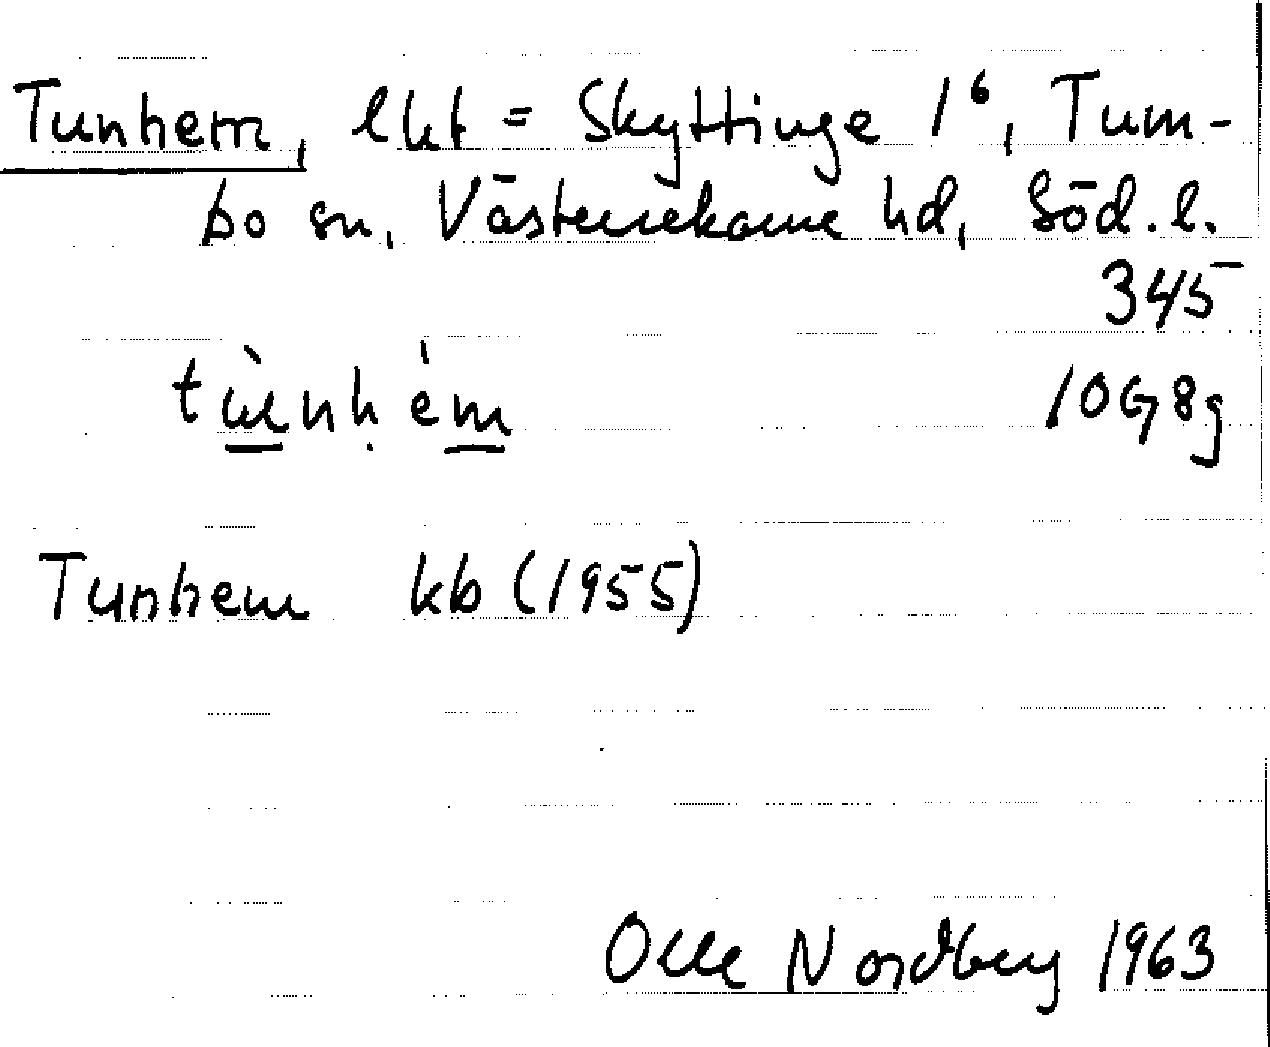 Tunhem, lht = Skyttinge 1⁶, Tum-
bo sn, Västerrekarne hd, Söd. l.
345
tùnhém 10G 8g
Tunhem kb (1955)
Olle Nordberg 1963